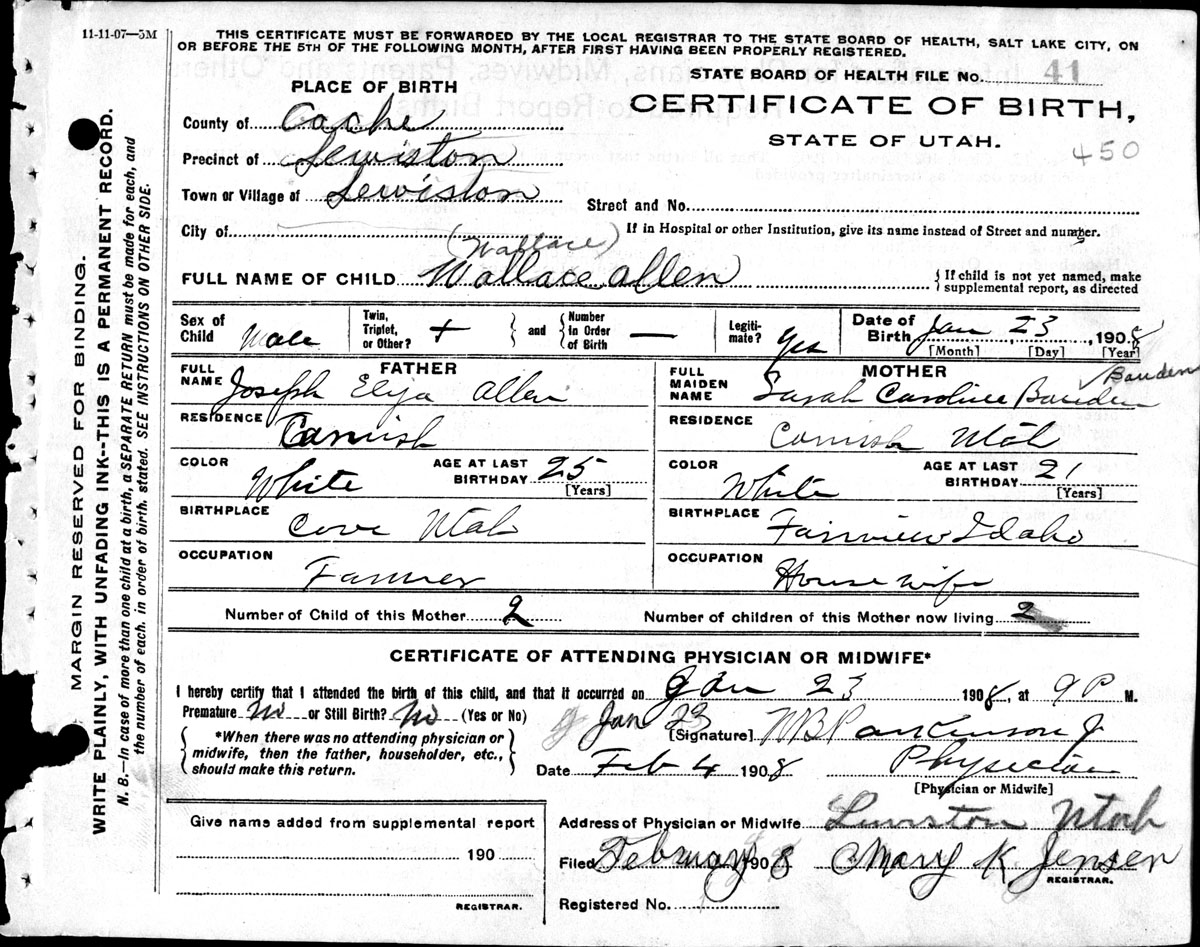 11-11-07—5M
THIS CERTIFICATE MUST BE FORWARDED BY THE LOCAL REGISTRAR TO THE STATE BOARD OF HEALTH, SALT LAKE CITY, ON
OR BEFORE THE 5TH OF THE FOLLOWING MONTH, AFTER FIRST HAVING BEEN PROPERLY REGISTERED.
STATE BOARD OF HEALTH FILE No. 41
PLACE OF BIRTH
CERTIFICATE OF BIRTH,
STATE OF UTAH.
450
County of Cache
Precinct of Lewiston
Town or Village of Lewiston
Street and No.
City of
If in Hospital or other Institution, give its name instead of Street and number.
(Wallace)
FULL NAME OF CHILD Wallace Allen
{If child is not yet named, make
supplemental report, as directed
Sex of Child Male
Twin, Triplet, or Other? +
and
Number in Order of Birth —
Legitimate? Yes
Date of Birth Jan 23, 1908
[Month] [Day] [Year]
FATHER
FULL NAME Joseph Elija Allen
RESIDENCE Cornish
COLOR White
AGE AT LAST BIRTHDAY 25
[Years]
BIRTHPLACE Cove Utah
OCCUPATION Farmer
MOTHER
FULL MAIDEN NAME Sarah Caroline
RESIDENCE Cornish Utah
COLOR White
AGE AT LAST BIRTHDAY 21
[Years]
BIRTHPLACE Fairview Idaho
OCCUPATION House wife
Number of Child of this Mother 2
Number of children of this Mother now living 2
CERTIFICATE OF ATTENDING PHYSICIAN OR MIDWIFE*
I hereby certify that I attended the birth of this child, and that it occurred on Jan 23 1908, at 9 P M.
Premature No or Still Birth? No (Yes or No)
Jan 23
[Signature] WB Parkinson Jr
*When there was no attending physician or
midwife, then the father, householder, etc.,
should make this return.
Date Feb 4 1908
Physician
[Physician or Midwife]
Give name added from supplemental report
190
REGISTRAR.
Address of Physician or Midwife Lewiston Utah
Filed February 1908 Mary K. Jensen
REGISTRAR.
Registered No.
MARGIN RESERVED FOR BINDING.
WRITE PLAINLY, WITH UNFADING INK--THIS IS A PERMANENT RECORD.
N. B.—In case of more than one child at a birth, a SEPARATE RETURN must be made for each, and
the number of each, in order of birth, stated. SEE INSTRUCTIONS ON OTHER SIDE.